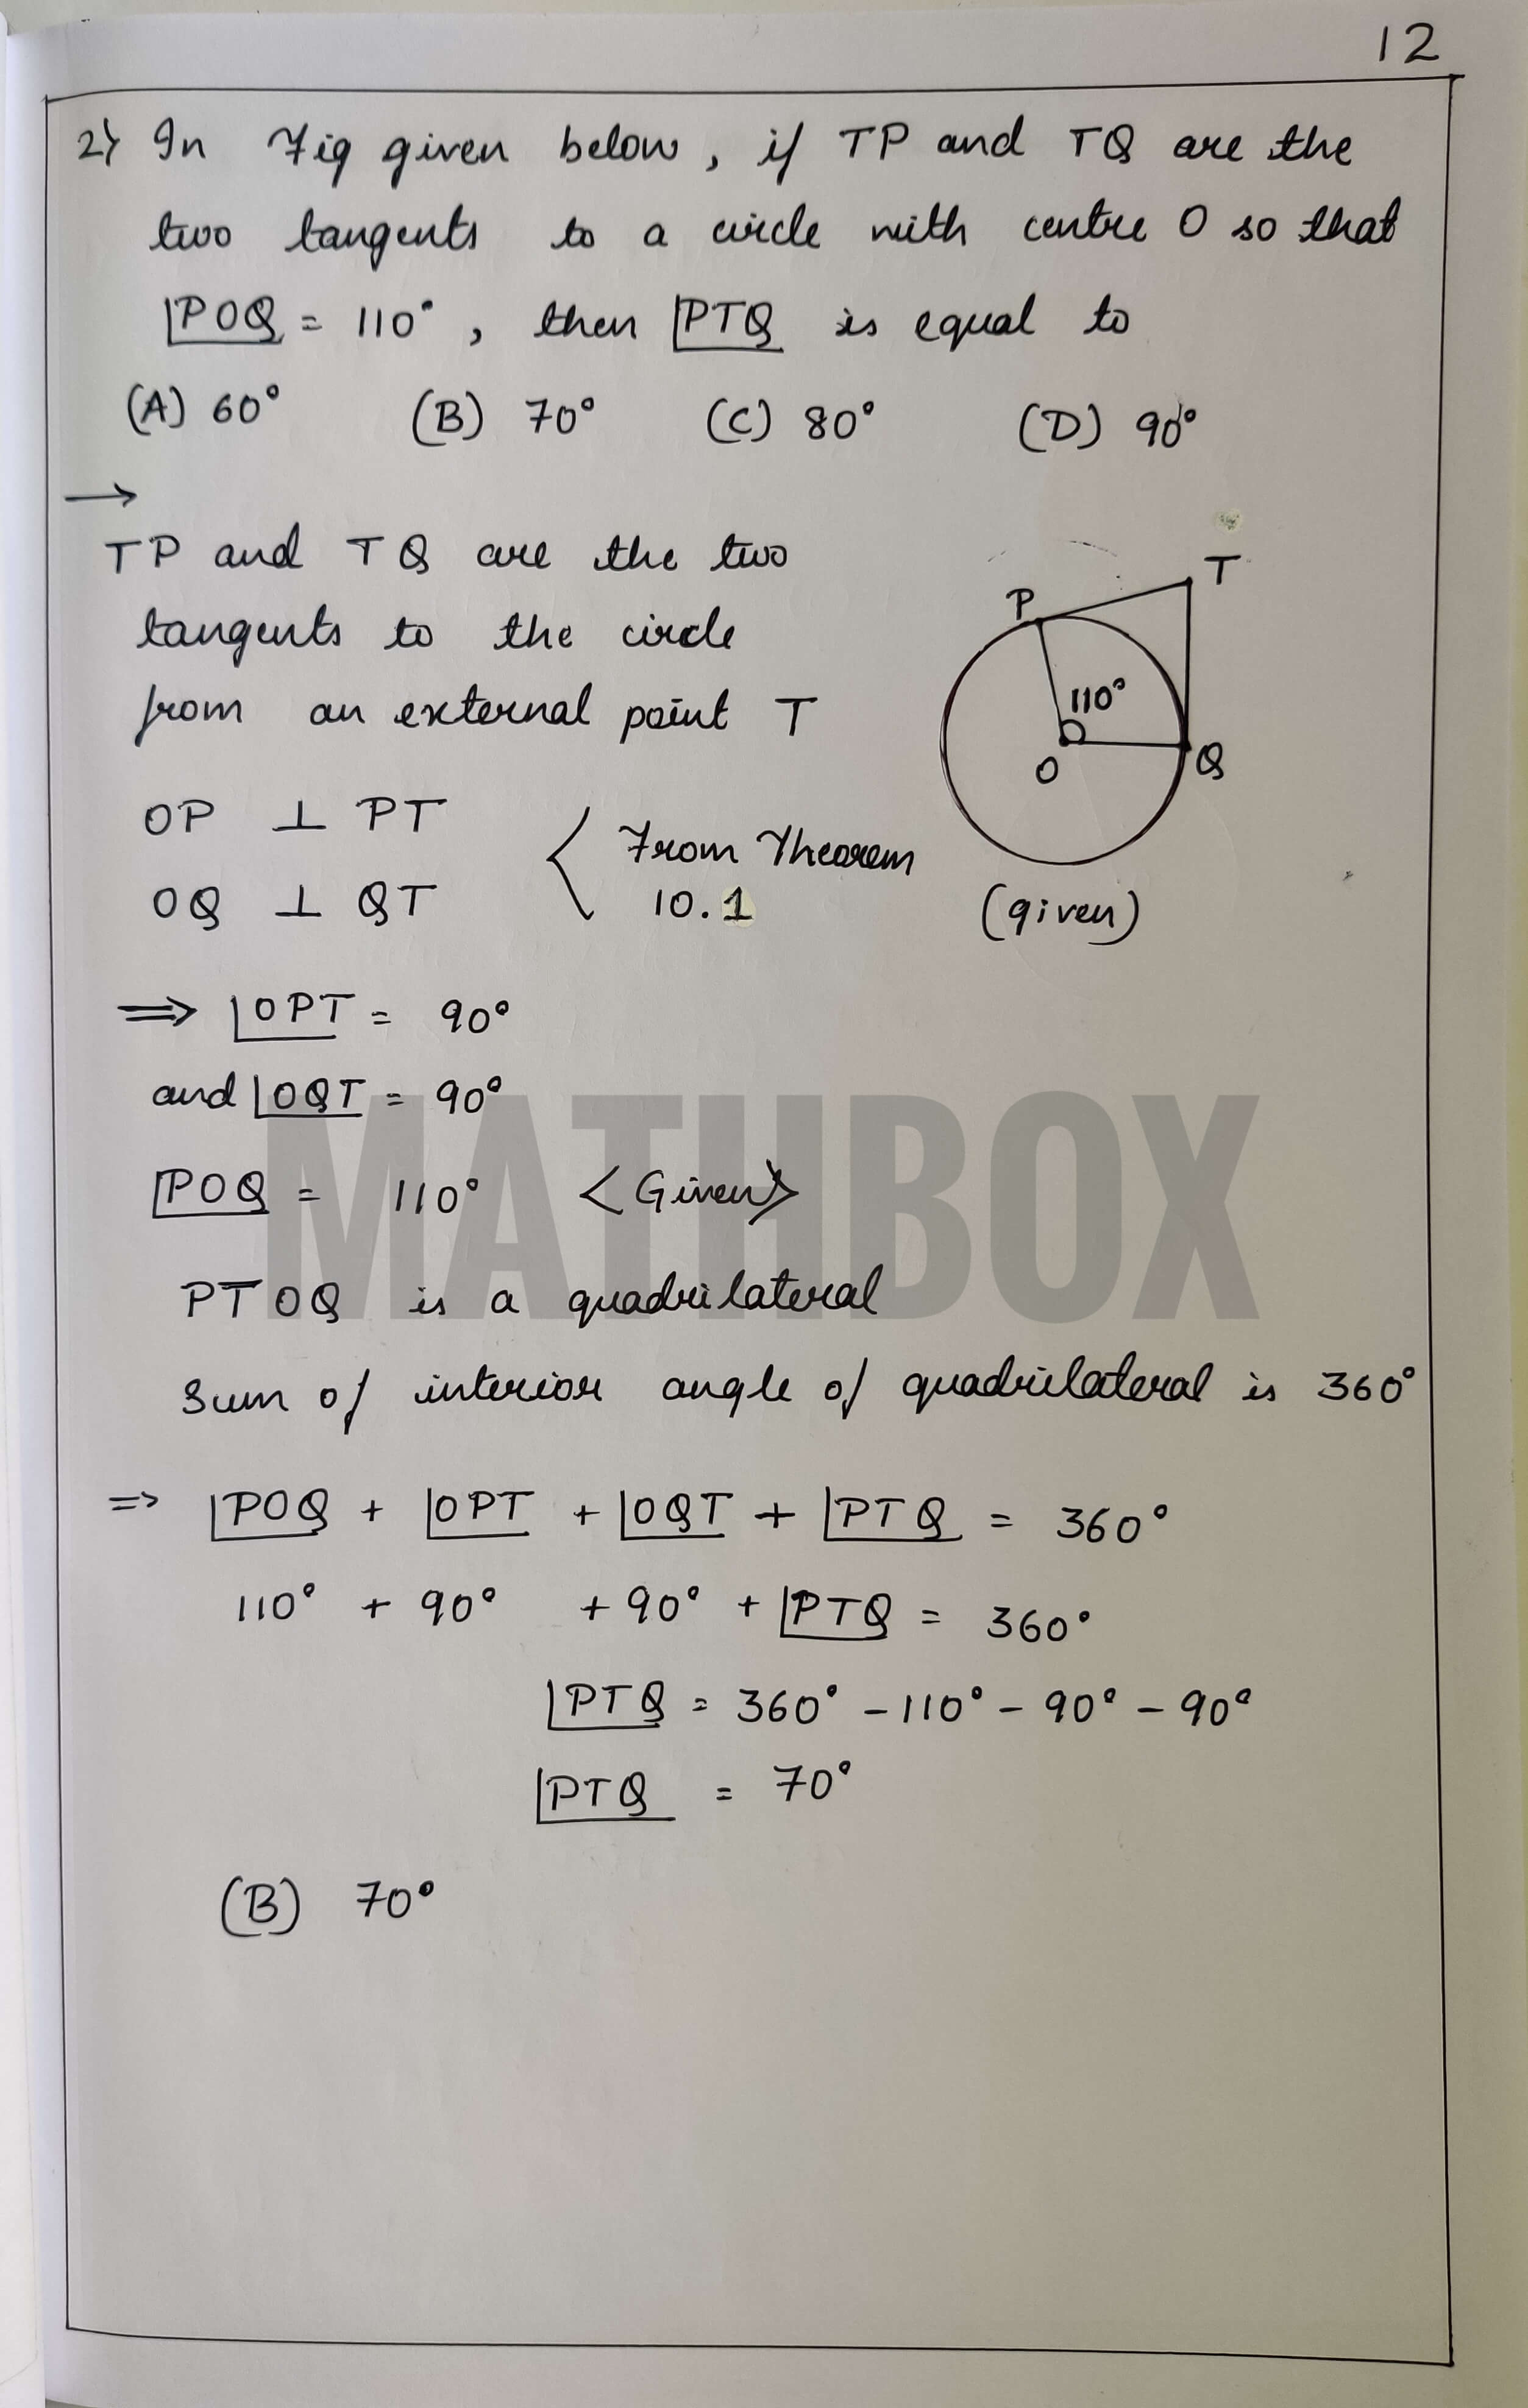 12
2) In Fig given below, if TP and TQ are the
two tangents to a circle with centre O so that
∠POQ = 110°, then ∠PTQ is equal to
(A) 60° (B) 70° (C) 80° (D) 90°
→
TP and TQ are the two
tangents to the circle
from an external point T
P
T
110°
O
Q
(given)
OP ⊥ PT
OQ ⊥ QT
< From Theorem
10.1
⇒ ∠OPT = 90°
and ∠OQT = 90°
∠POQ = 110° <Given>
PTOQ is a quadrilateral
Sum of interior angle of quadrilateral is 360°
⇒ ∠POQ + ∠OPT + ∠OQT + ∠PTQ = 360°
110° + 90° + 90° + ∠PTQ = 360°
∠PTQ = 360° - 110° - 90° - 90°
∠PTQ = 70°
(B) 70°
MATHBOX